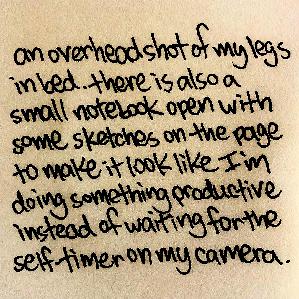 an overhead shot of my legs
in bed..there is also a
small notebook open with
some sketches on the page
to make it look like I'm
doing something productive
instead of waiting for the
self-timer on my camera.